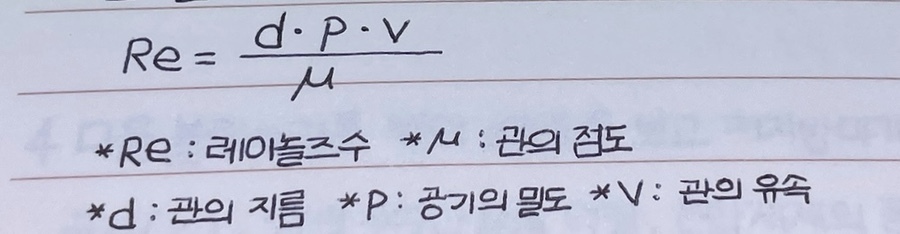 Re = d·p·v / μ
*Re : 레이놀즈수 *μ : 관의 점도
*d : 관의 지름 *P : 공기의 밀도 *V : 관의 유속